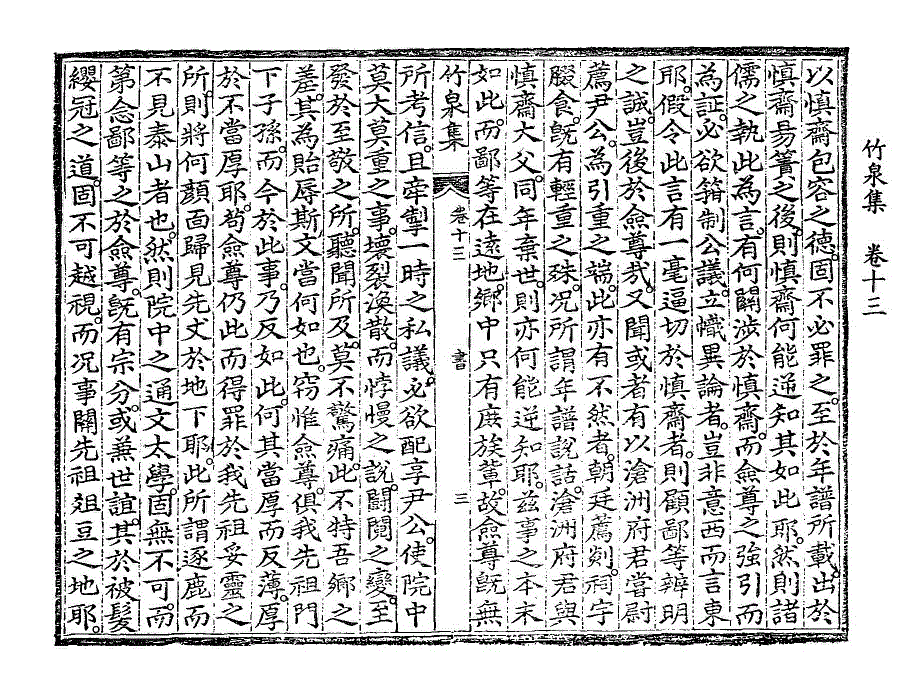 竹泉集　卷十三
以愼齋包容之德。固不必罪之。至於年譜所載。出於
愼齋易簀之後。則愼齋何能逆知其如此耶。然則諸
儒之執此爲言。有何關涉於愼齋。而僉尊之強引而
爲証。必欲箝制公議。立幟異論者。豈非意西而言東
耶。假令此言有一毫逼切於愼齋者。則顧鄙等辨明
之誠。豈後於僉尊哉。又聞或者有以滄洲府君嘗尉
薦尹公。爲引重之端。此亦有不然者。朝廷薦剡。祠宇
腏食。旣有輕重之殊。况所謂年譜說話。滄洲府君與
愼齋大父。同年棄世。則亦何能逆知耶。玆事之本末
如此。而鄙等在遠地。鄕中只有庶族輩。故僉尊旣無
竹泉集　卷十三　書　三
所考信。且牽掣一時之私議。必欲配享尹公。使院中
莫大莫重之事。壞裂渙散。而悖慢之說。鬪鬩之變。至
發於至敬之所。聽聞所及。莫不驚痛。此不特吾鄕之
羞。其爲貽辱斯文當何如也。窃惟僉尊俱我先祖門
下子孫。而今於此事。乃反如此。何其當厚而反薄。厚
於不當厚耶。苟僉尊仍此而得罪於我先祖妥靈之
所。則將何顔面歸見先丈於地下耶。此所謂逐鹿而
不見泰山者也。然則院中之通文太學。固無不可。而
第念鄙等之於僉尊。旣有宗分。或兼世誼。其於被髮
纓冠之道。固不可越視。而况事關先祖俎豆之地耶。